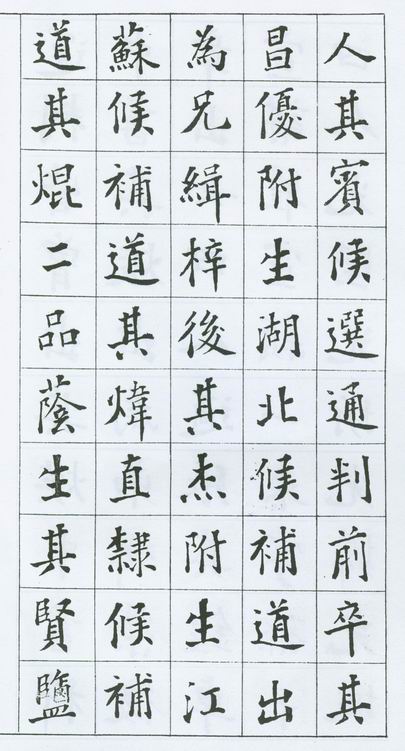 人其賓候選通判前卒其
昌優附生湖北候補道出
為兄緝梓後其杰附生江
蘇候補道其煒直隸候補
道其焜二品蔭生其賢鹽